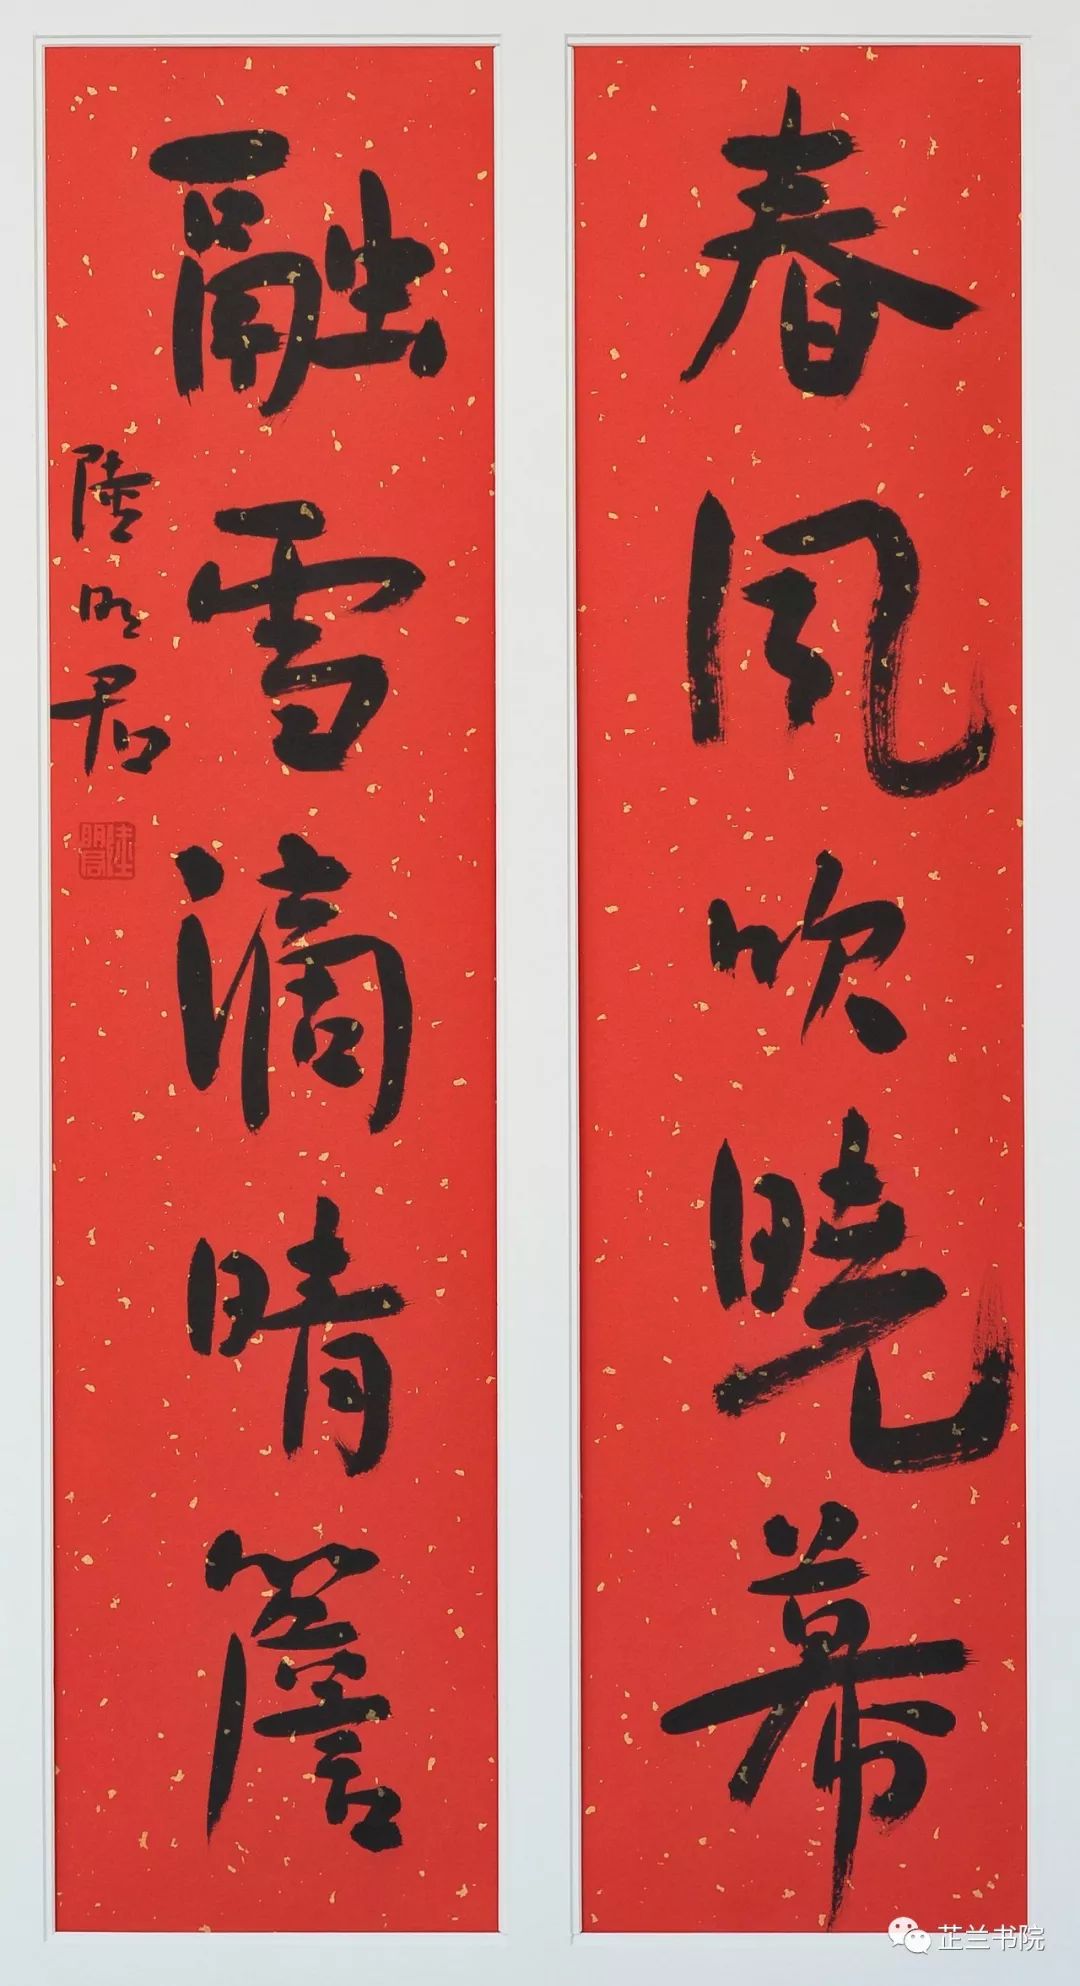 春風吹曉幕
融雪滴晴簷
陸明君
芷兰书院